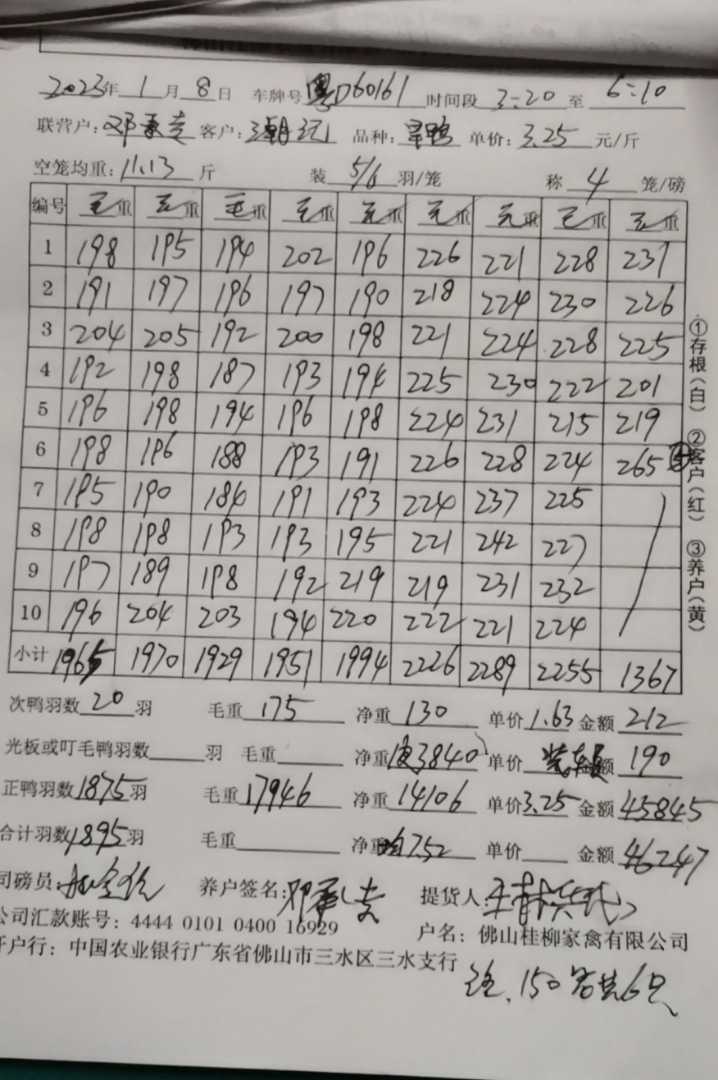 2023年 1 月 8 日 车牌号 粤D60161 时间段 3:20 至 6:10
联营户: 客户: 品种: 单价: 3.25 元/斤
空笼均重: 11.13 斤 装 5/6 羽/笼 称 4 笼/磅
编号 毛重 毛重 毛重 毛重 毛重 毛重 毛重 毛重 毛重
1 198 195 194 202 196 226 221 228 231
2 191 197 196 197 190 218 224 230 226
3 204 205 192 200 198 221 224 228 225
4 192 198 187 193 194 225 230 222 201
5 196 198 194 196 198 224 231 215 219
6 198 196 188 193 191 226 228 224 265
7 195 190 184 191 193 224 237 225
8 198 198 193 193 195 221 242 227
9 197 189 198 192 219 219 231 232
10 196 204 203 194 220 222 221 224
小计 1965 1970 1929 1951 1994 2226 2289 2255 1367
次鸭羽数 20 羽 毛重 175 净重 130 单价 1.63 金额 212
光板或叮毛鸭羽数 羽 毛重 净重 3840 单价 金额 190
正鸭羽数 1875 羽 毛重 17946 净重 14106 单价 3.25 金额 45845
合计羽数 1895 羽 毛重 净重 均7.52 单价 金额 46247
司磅员: 养户签名: 提货人:
公司汇款账号: 4444 0101 0400 16929 户名: 佛山桂柳家禽有限公司
开户行: 中国农业银行广东省佛山市三水区三水支行
注. 150 6只
①存根(白) ②客户(红) ③养户(黄)